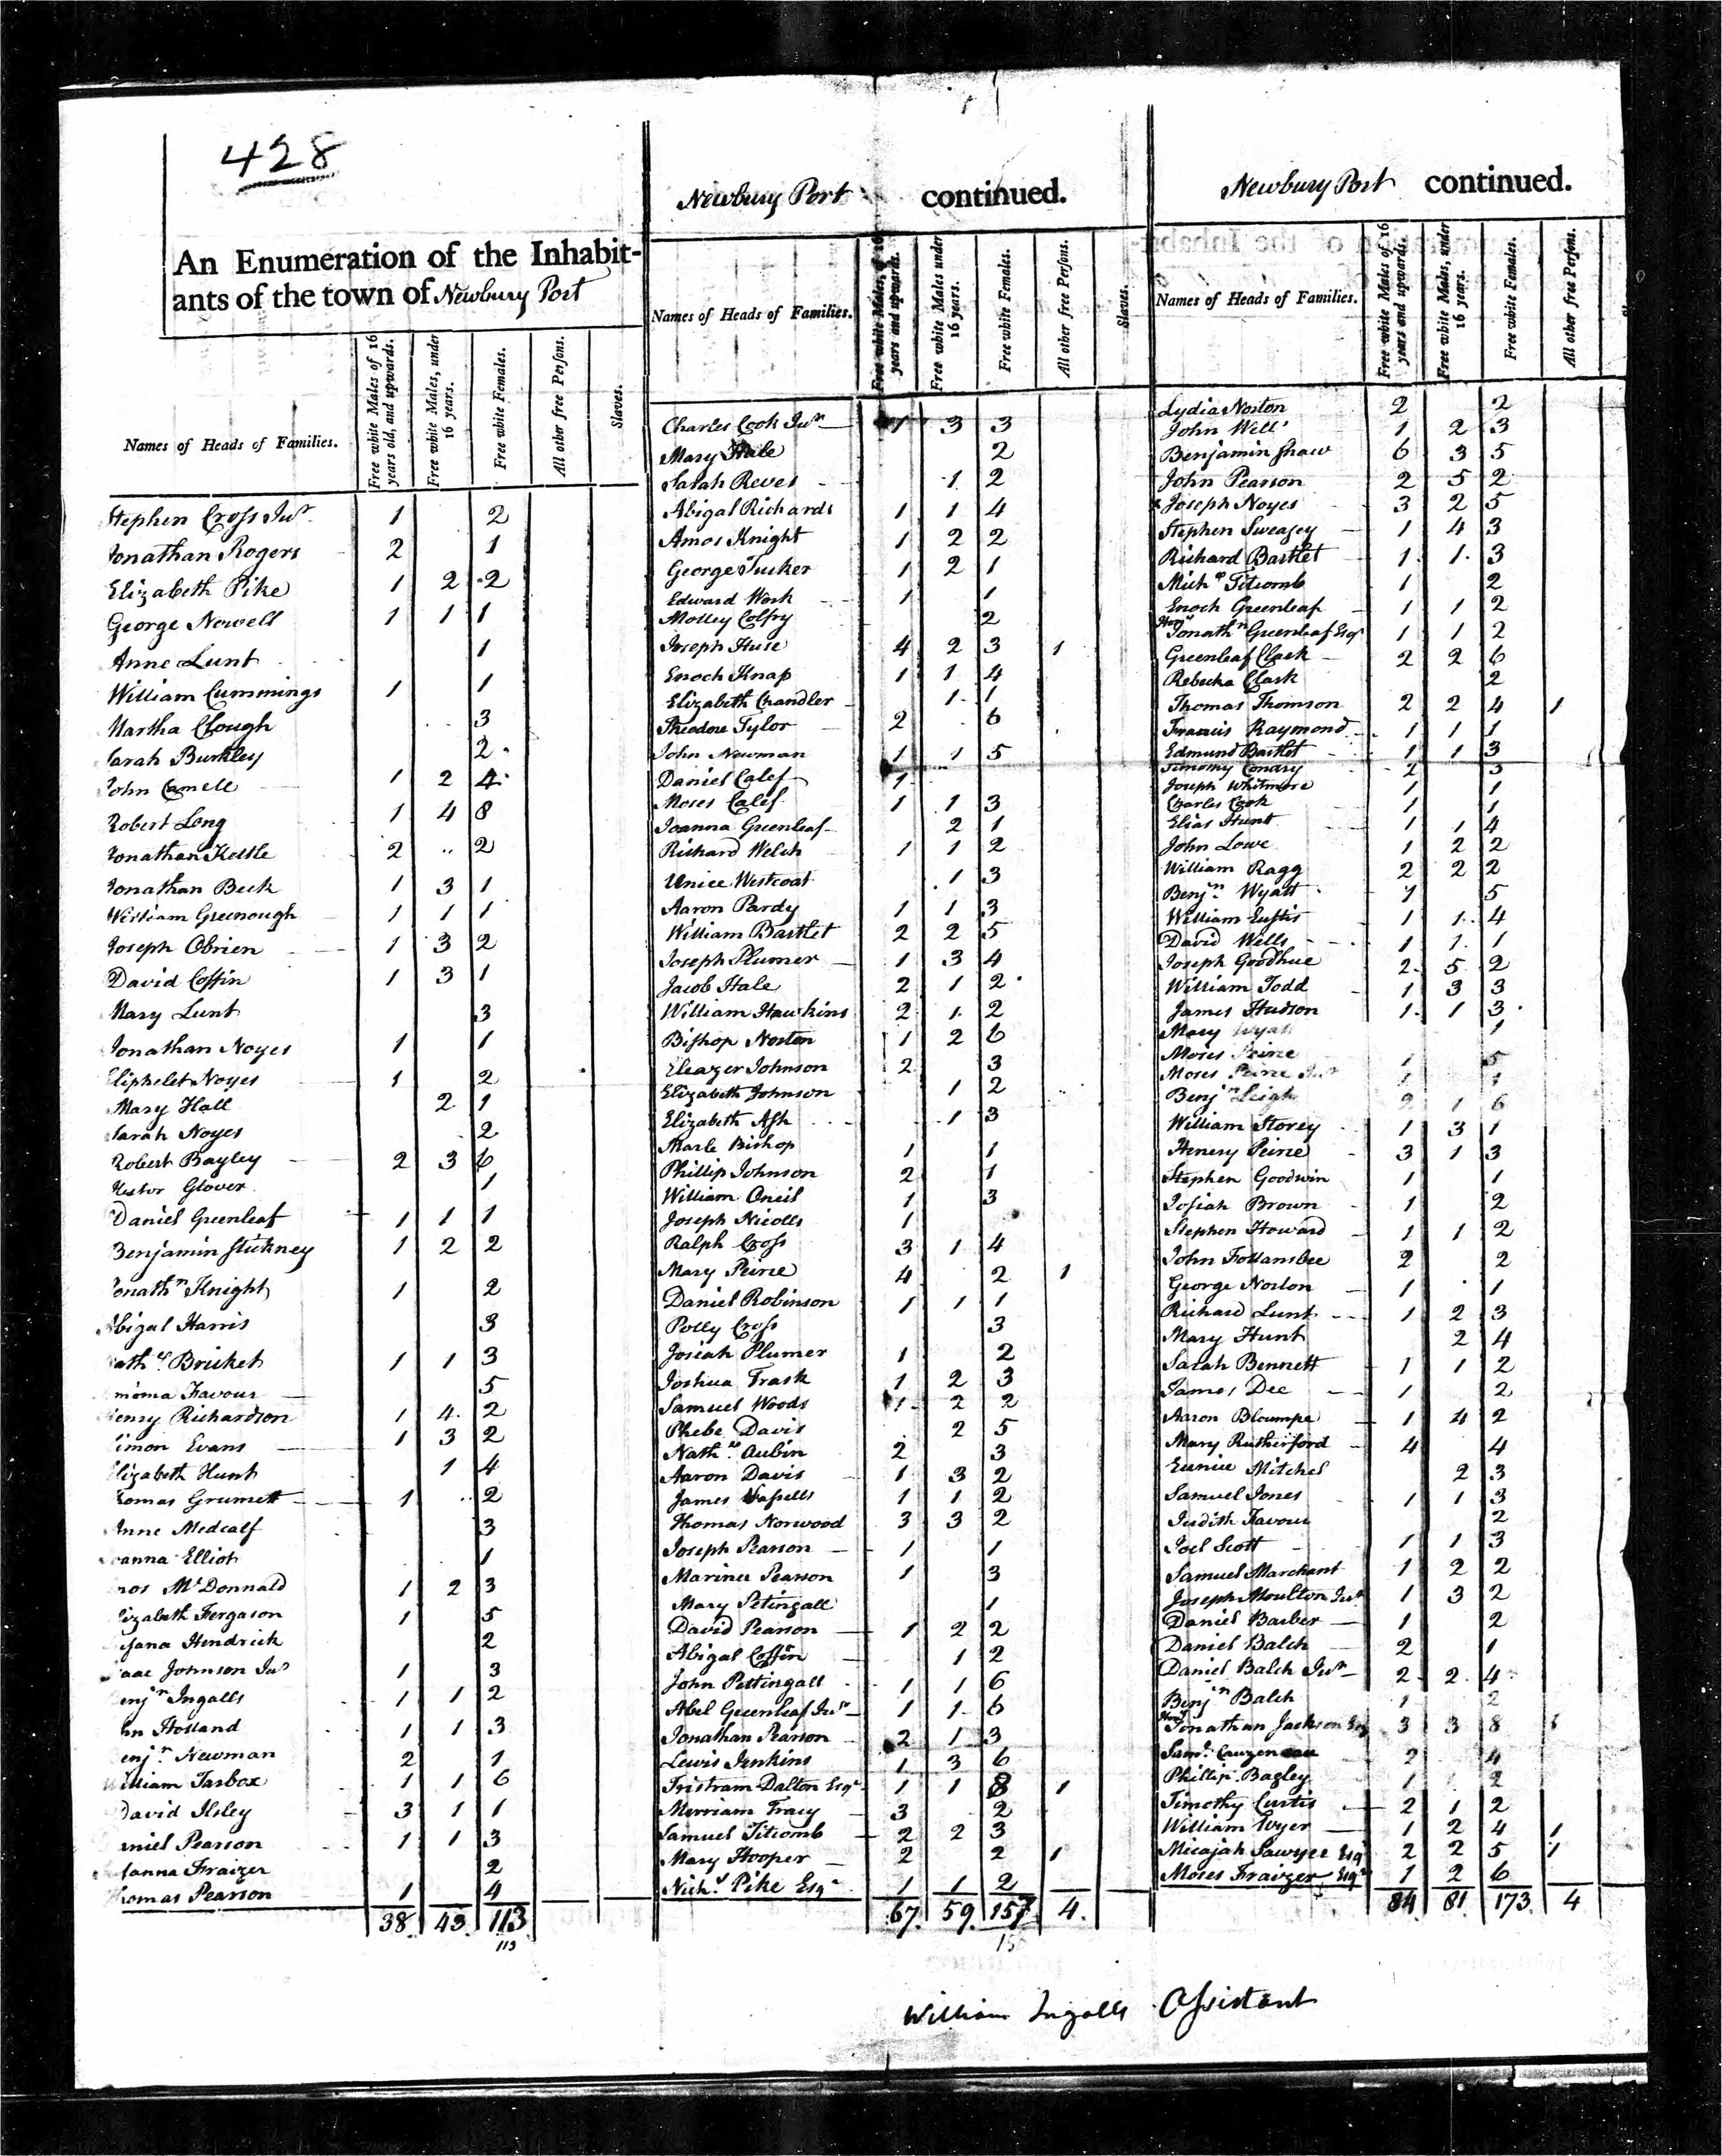 428
An Enumeration of the Inhabit-
ants of the town of Newbury Port
Names of Heads of Families.
Free white Males of 16 years old, and upwards.
Free white Males, under 16 years.
Free white Females.
All other free Persons.
Slaves.
Stephen Cross Junr 1 2
Jonathan Rogers 2 1
Elizabeth Pike 1 2 2
George Newell 1 1 1
Anne Lunt 1
William Cummings 1 1
Martha Clough 3
Sarah Burkley 2
John Camell 1 2 4
Robert Long 1 4 8
Jonathan Kettle 2 2
Jonathan Beck 1 3 1
William Greenough 1 1 1
Joseph Obrien 1 3 2
David Coffin 1 3 1
Mary Lunt 3
Jonathan Noyes 1 1
Eliphelet Noyes 1 2
Mary Hall 2 1
Sarah Noyes 2
Robert Bayley 2 3 6
Glover 1
Daniel Greenleaf 1 1 1
Benjamin Stickney 1 2 2
onathn Knight 1 2
Abigal Harris 3
athl Bricket 1 1 3
Favour 5
Henry Richardson 1 4 2
imon Evans 1 3 2
Elizabeth Hunt 1 4
homas Grumett 1 2
Anne Medcalf 3
oanna Elliot 1
mos McDonnald 1 2 3
lizabeth Fergason 1 5
Hendrick 2
saac Johnson Junr 1 3
enjn Ingalls 1 1 2
hn Holland 1 1 3
enjn Newman 2 1
William Tarbox 1 1 6
David Ilsley 3 1 1
aniel Pearson 1 1 3
sanna Fraizer 2
homas Pearson 1 4
38. 43. 113
113
Newbury Port continued.
Names of Heads of Families.
Free white Males, of 16 years and upwards.
Free white Males under 16 years.
Free white Females.
All other free Persons.
Slaves.
Charles Cook Junr 1 3 3
Mary Hale 2
Sarah Reves 1 2
Abigal Richards 1 1 4
Amos Knight 1 2 2
George Tucker 1 2 1
Edward Work 1 1
Molley Colfry 2
Joseph Huse 4 2 3 1
Enoch Knap 1 1 4
Elizabeth Chandler 1 1
Theodore Tylor 2 6
John Newman 1 1 5
Daniel Calef 1
Moses Calef 1 1 3
Joanna Greenleaf 2 1
Richard Welch 1 1 2
Unice Westcoat 1 3
Aaron Pardy 1 1 3
William Bartlet 2 2 5
Joseph Plumer 1 3 4
Jacob Hale 2 1 2
William Hawkins 2 1 2
Bishop Norton 1 2 6
Eleazer Johnson 2 3
Elizabeth Johnson 1 2
Elizabeth Ash 1 3
Marle Bishop 1 1
Phillip Johnson 2 1
William Oneil 1 3
Joseph Nicolls 1
Ralph Cross 3 1 4
Mary Peirce 4 2 1
Daniel Robinson 1 1 1
Polly Cross 3
Josiah Plumer 1 2
Joshua Trask 1 2 3
Samuel Woods 1 2 2
Phebe Davis 2 5
Nathl Aubin 2 3
Aaron Davis 1 3 2
James 1 1 2
Thomas Norwood 3 3 2
Joseph Pearson 1 1
Mariner Pearson 1 3
Mary Petingall 1
David Pearson 1 2 2
Abigal Coffin 1 2
John Pettingall 1 1 6
Abel Greenleaf Junr 1 1 6
Jonathan Pearson 2 1 3
Lewis Jenkins 1 3 6
Tristram Dalton Esqr 1 1 8 1
Merriam Tracy 3 2
Samuel Titcomb 2 2 3
Mary Hooper 2 2 1
Nichs Pike Esqr 1 1 2
67. 59. 157 4.
Newbury Port continued.
Names of Heads of Families.
Free white Males of 16 years and upwards.
Free white Males, under 16 years.
Free white Females.
All other free Persons.
Lydia Norton 2 2
John Well 1 2 3
Benjamin Shaw 6 3 5
John Pearson 2 5 2
Joseph Noyes 3 2 5
Stephen Sweasey 1 4 3
Richard Bartlet 1 1 3
Michl Titcomb 1 2
Enoch Greenleaf 1 1 2
Honl Jonathn Greenleaf Esqr 1 1 2
Greenleaf Clark 2 2 6
Rebecka Clark 2
Thomas Thomson 2 2 4 1
Francis Raymond 1 1 1
Edmund Bartlet 1 1 3
Timothy Condry 2 3
Joseph Whitmore 1 1
Charles Cook 1 1
Elias Hunt 1 1 4
John Lowe 1 2 2
William Ragg 2 2 2
Benjn Wyatt 1 5
William Eustis 1 1 4
David Wells 1 1 1
Joseph Goodhue 2 5 2
William Todd 1 3 3
James Hudson 1 1 3
Mary Wyatt 1
Moses Peirce 1 5
Moses Peirce Junr 1 1
Benjn Leigh 2 1 6
William Storey 1 3 1
Henery Peirce 3 1 3
Stephen Goodwin 1 1
Josiah Brown 1 2
Stephen Howard 1 1 2
John Follansbee 2 2
George Norton 1 1
Richard Lunt 1 2 3
Mary Hunt 2 4
Sarah Bennett 1 1 2
James Dee 1 2
Aaron Bloumpe 1 4 2
Mary Rutherford 4 4
Eunice Mitchel 2 3
Samuel Jones 1 1 3
Judith Favour 2
Joel Scott 1 1 3
Samuel Marchant 1 2 2
Joseph Moulton Junr 1 3 2
Daniel Barber 1 2
Daniel Balch 2 1
Daniel Balch Junr 2 2 4
Benjn Balch 1 2
Honl Jonathan Jackson Esq 3 3 8
Saml 2 4
Phillip Bagley 1 2
Timothy Curtis 2 1 2
William Wyer 1 2 4 1
Micajah Sawyer Esq 2 2 5 1
Moses Fraizer Esqr 1 2 6
84 81. 173. 4
William Ingalls Assistant